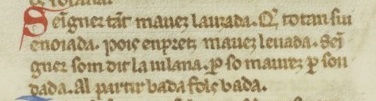 Seigner tāt mauez laurada. Q̄ totan sui
enoiada. pois enpres mauez leuada. Sei
gner som dit la uilana. ꝑ so maurez ꝑ sou
dada. Al partir bada fols bada.